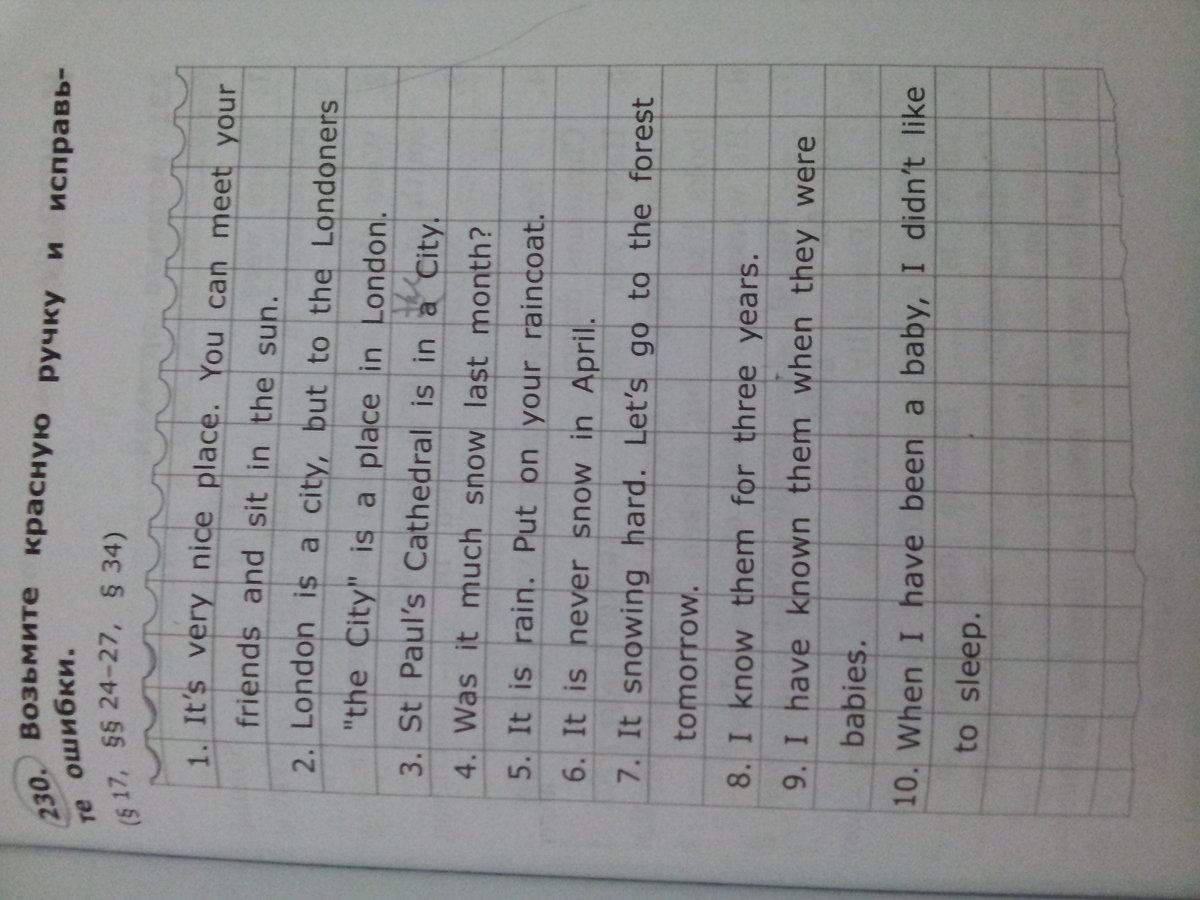 230. Возьмите красную ручку и исправь-
те ошибки.
(§ 17, §§ 24–27, § 34)
1. It's very nice place. You can meet your
friends and sit in the sun.
2. London is a city, but to the Londoners
"the City" is a place in London.
the
3. St Paul's Cathedral is in a City.
4. Was it much snow last month?
5. It is rain. Put on your raincoat.
6. It is never snow in April.
7. It snowing hard. Let's go to the forest
tomorrow.
8. I know them for three years.
9. I have known them when they were
babies.
10. When I have been a baby, I didn't like
to sleep.